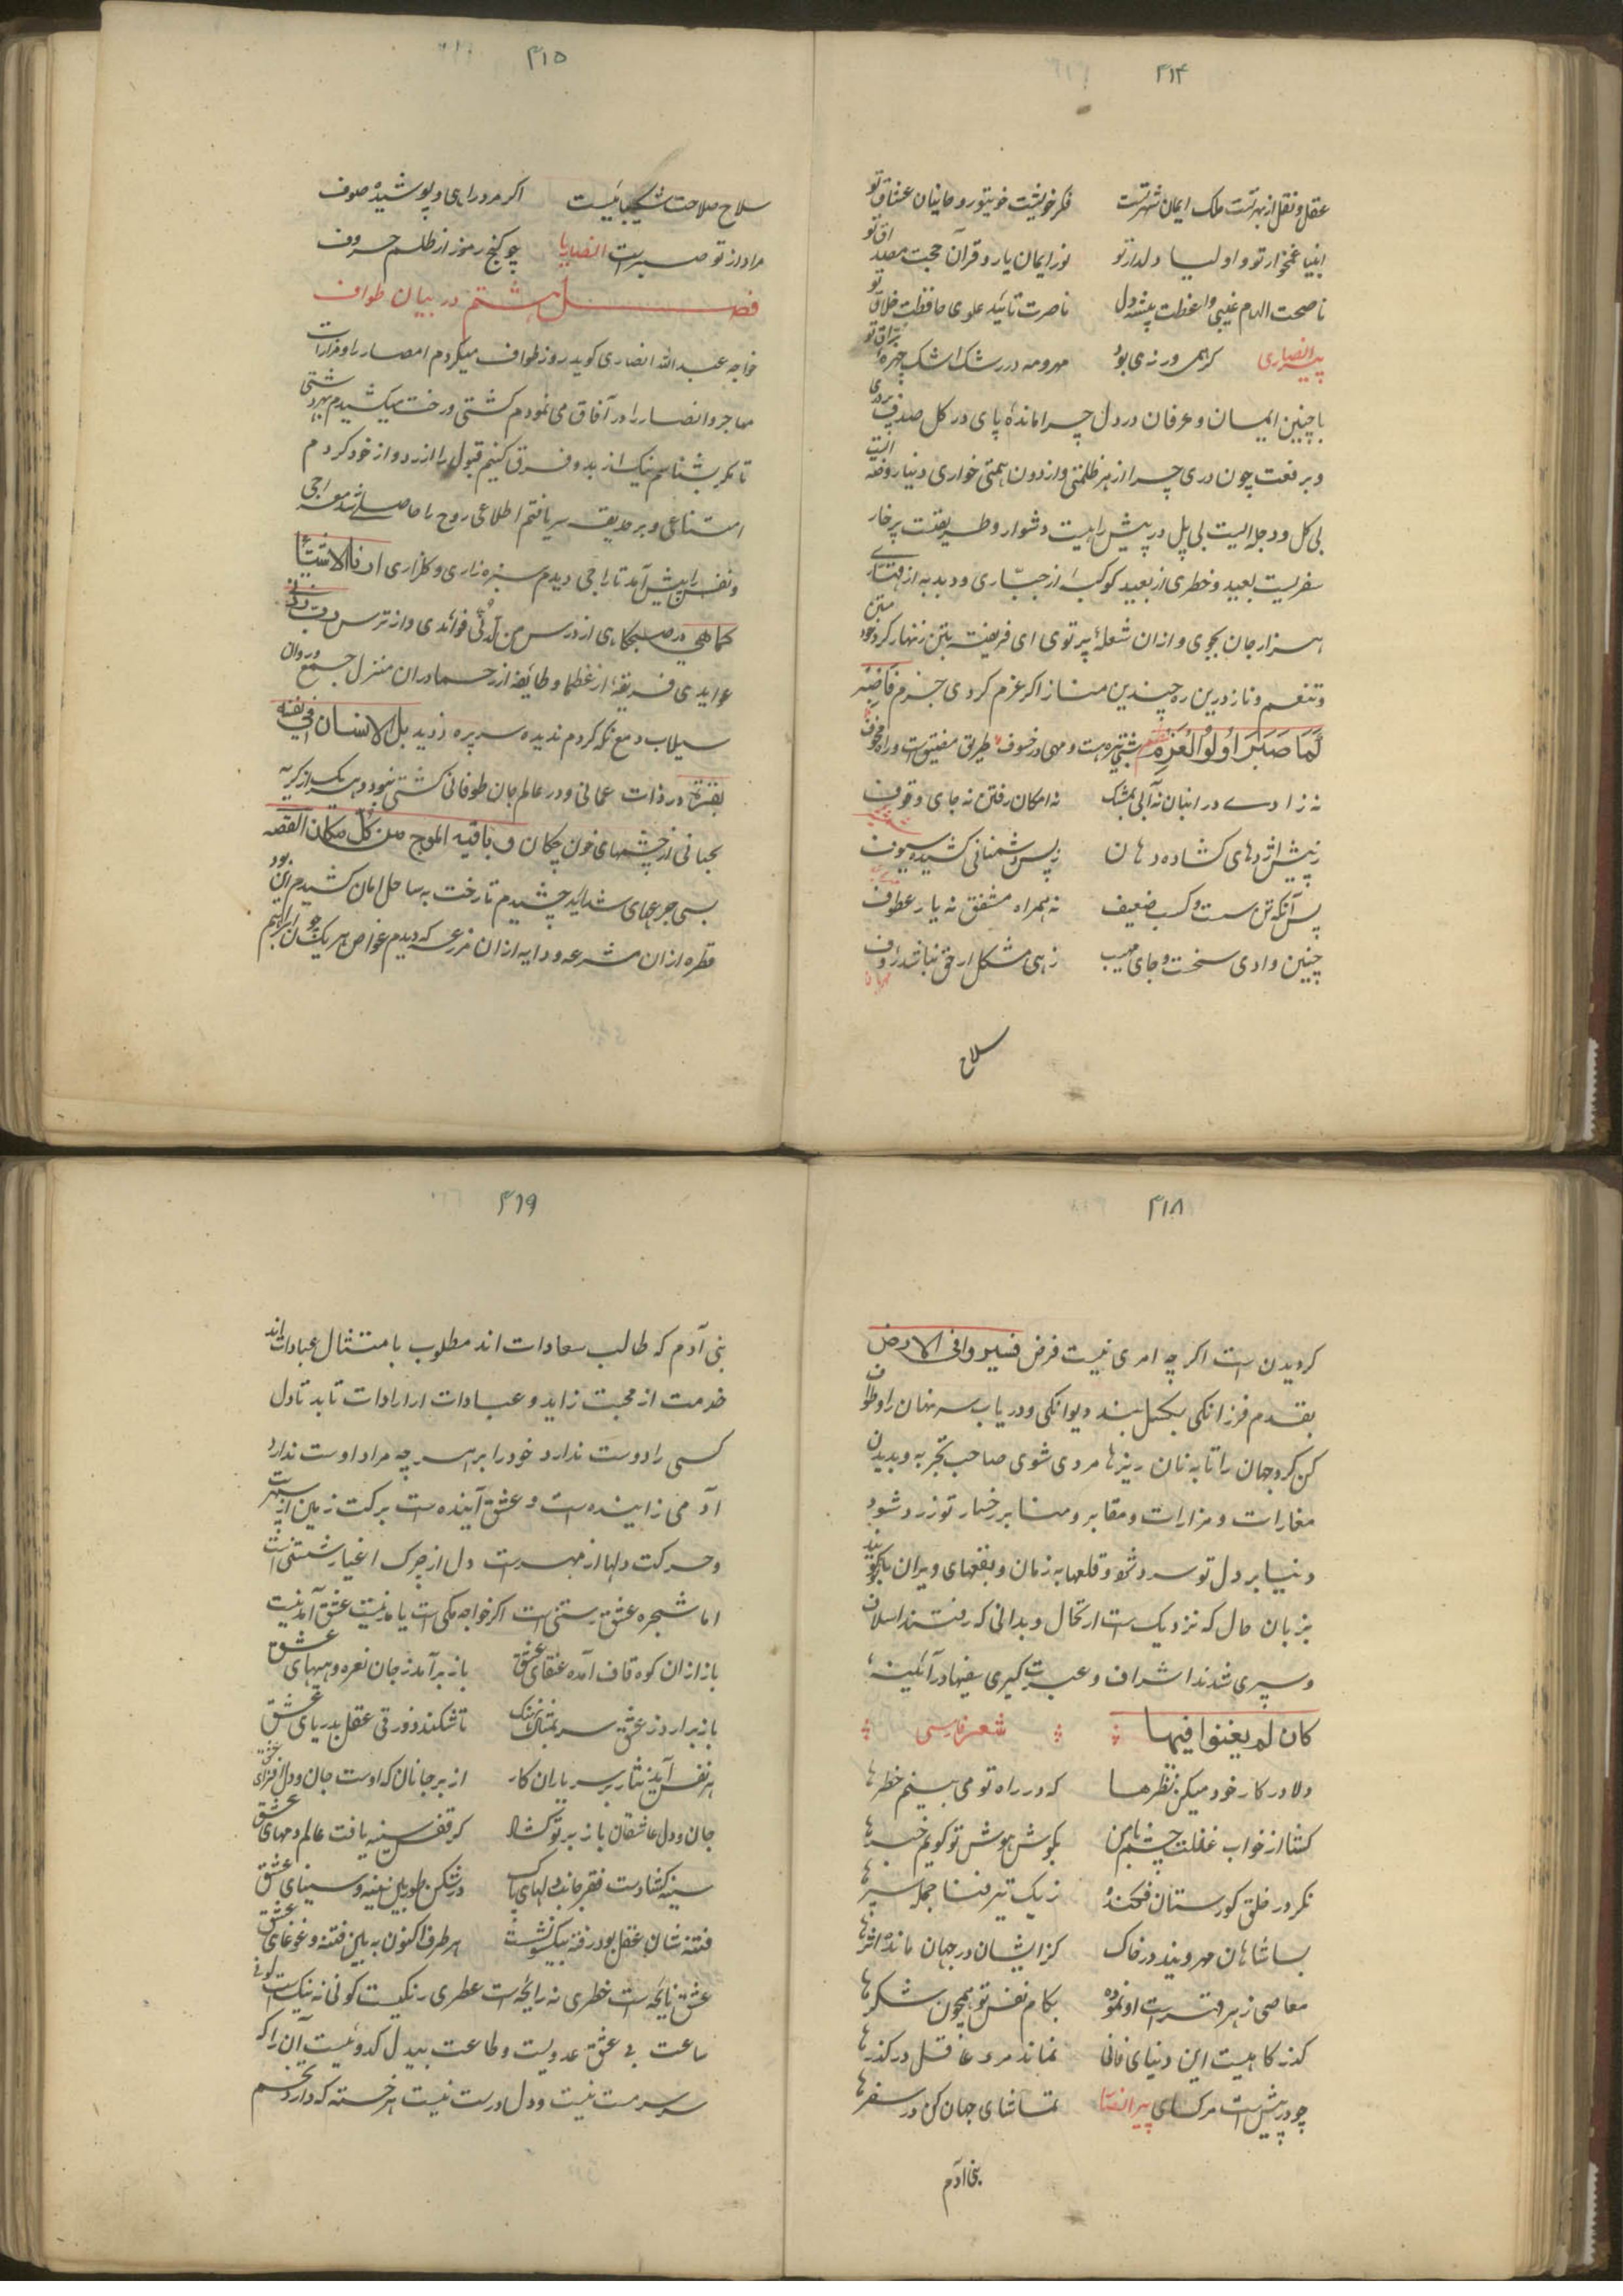 ۴۱۴
عقل و نقل از بهر تست ملک ایمان شهر تست فکر خویشت خویتور و حانیان عشاق تو
انبیا غمخوار تو و اولیا دلدار تو نور ایمان یار و قرآن حجت مصداق تو
ناصحت الهام غیبی واعظت پیشه دل ناصرت تائید علوی حافظت خلاق تو
پیر انصاری کرهمی ورزی بود مهر و مه در رشک اشک چهره براق تو
با چنین ایمان و عرفان در دل چرا مانده پای در کل صدف پر دری
و بر رفعت چون دری چرا از هر ظلمتی و از دون همتی خواری دنیا روضه ایست
بی کل و دجله ایست بی پل در پیش راهیست دشوار و طریقت پر خار
سفریست بعید و خطری از بعید کوکبه از جباری و دبدبه از قهاری
هزار جان بجوی و از ان شعله پرتوی ای فریفته بتن زنهار کرد خود متن
و تنعم و ناز درین ره چندین مناز اکر عزم کردی جزم فَاصْبِرْ
كَمَا صَبَرَ اُولُوا الْعَزْمِ شعر شبی تیره ست و مهی در خسوف طریق مضیق ست و راه مخوف
نه زادے در انبان نه آبی بمشک نه امکان رفتن نه جای وقوف
ز پیش اژدهای کشاده دهان ز پس دشمنانی کشیده سیوف
پس آنکه تن سست و کسب ضعیف نه همراه مشفق نه یار عطوف
چنین وادی سخت و جای مهیب زهی مشکل ار حق نباشد رؤف
سلاح
۴۱۵
سلاح صلاحت شکیبائیست اکر مرد راهی و پوشیده صوف
مراد از تو صبرست انصاریا چو کنج رموز از طلسم حروف
فصل هشتم در بیان طواف
خواجه عبد الله انصاری کوید روز طواف میکردم امصار را و مزارات
مهاجر و انصار را در آفاق می نمودم کشتی و رخت میکشیدم بهر دشتی
تا مکر بشناسم نیک از بد و فرق کنم قبول را از رد و از خود کردم
امتناعی و بر حدیقه سر یافتم اطلاعی روح را حاصل شد معراجی
و نفس را پیش آمد تاراجی دیدم سبزه زاری و کلزاری ارنا الاشیا
کماهی در صبحکاهی از درس من لدنی فوائدی و از ترس
عوایدی فریقه از عظما و طائفه از رحما در ان منزل جمع و روان
سیلاب دمع نکه کردم ندیده سر پره ز دید بل الانسان فی نفسه
بصیرة در ذات عمانی و در عالم جان طوفانی کشتی نبود و هر یک از کریه
بجانی از چشمهای خون چکان و یاتیه الموج من کل مکان القصه
بسی جرعهای شدائد چشیدم تا رخت به ساحل امان کشیدم این بود
قطره از ان مشرعه و دایه از ان مزرعه که دیدم غواص هر یک چون ابراهیم
۴۱۸
کردیدن ست اکر چه امری نیست فرض فسیروا فی الارض
بقدم فرزانکی بکسل بند دیوانکی و دریاب سر نهان را و طواف
کن کرد جهان را تا به نان ریزها مردی شوی صاحب تجربه و بدیدن
مغارات و مزارات و مقابر و منابر رخسار تو زرد شود
دنیا بر دل تو سرد شود و قلعها به زمان و بقعهای ویران با تو کویند
بزبان حال که نزدیک ست ارتحال و بدانی که رفتند اسلاف
و سپری شدند اشراف و عبرت کیری بفنهادر آئینه
کان لم یغنوا فیها شعر فارسی
دلا در کار خود میکن نظرها که در راه تو می بینم خطرها
کشا از خواب غفلت چشم تا من بکوش هوش تو کویم خبرها
نکر در خلق کورستان فکنده ز یک تیر فنا جمله سپرها
بسا شاهان مه رویند در خاک کزایشان در جهان مانده اثرها
معاصی زهر قهرست او نموده بکام نفس تو همچون شکرها
کذرکاهیست این دنیای فانی نماند مرد عاقل در کذرها
چو در پیش است مرکت ای پیر انصار تماشای جهان کن در سفرها
بنی آدم
۴۱۹
بنی آدم که طالب سعادات اند مطلوب با متثال عبادات اند
خدمت از محبت زاید و عبادات از ارادات تابد تا دل
کسی را دوست ندارد خود را بر هر چه مراد اوست ندارد
آدمی زاینده است و عشق آینده ست برکت زمین از سپهرست
و حرکت دلها از مهرست دل از چرک اغیار شستنی است
اما شجره عشق رستنی است اکر خواجه مکی است یا مدنیست عشق آمدنیست
باز از ان کوه قاف آمده عنقای عشق باز برآمد ز جان نعره و هیهای عشق
باز برارد ز عشق سر بمثال نهنک تا شکند زورق عقل بدریای عشق
هر نفس آید نثار بر سر یاران کار از بر جانان که اوست جان و دل افزای عشق
جان و دل عاشقان باز بر تو کشاد کز قفس سینه یافت عالم دمهای عشق
سینه کشادست فقر جانب دلهای پاک در شکن طور بین سینه و سینای عشق
فتنه نشان عقل بود رفت بیکسو نشست هر طرف اکنون ببین فتنه و غوغای عشق
عشق نایحه است خطری نه رایحه است عطری رنکیست کونی نه نیک است کونی
ساعت بی عشق عدویست و طاعت بیدل کدوئیست آن را که
سر سرمست نیست و دل درست نیست هر خسته که دارد تخم